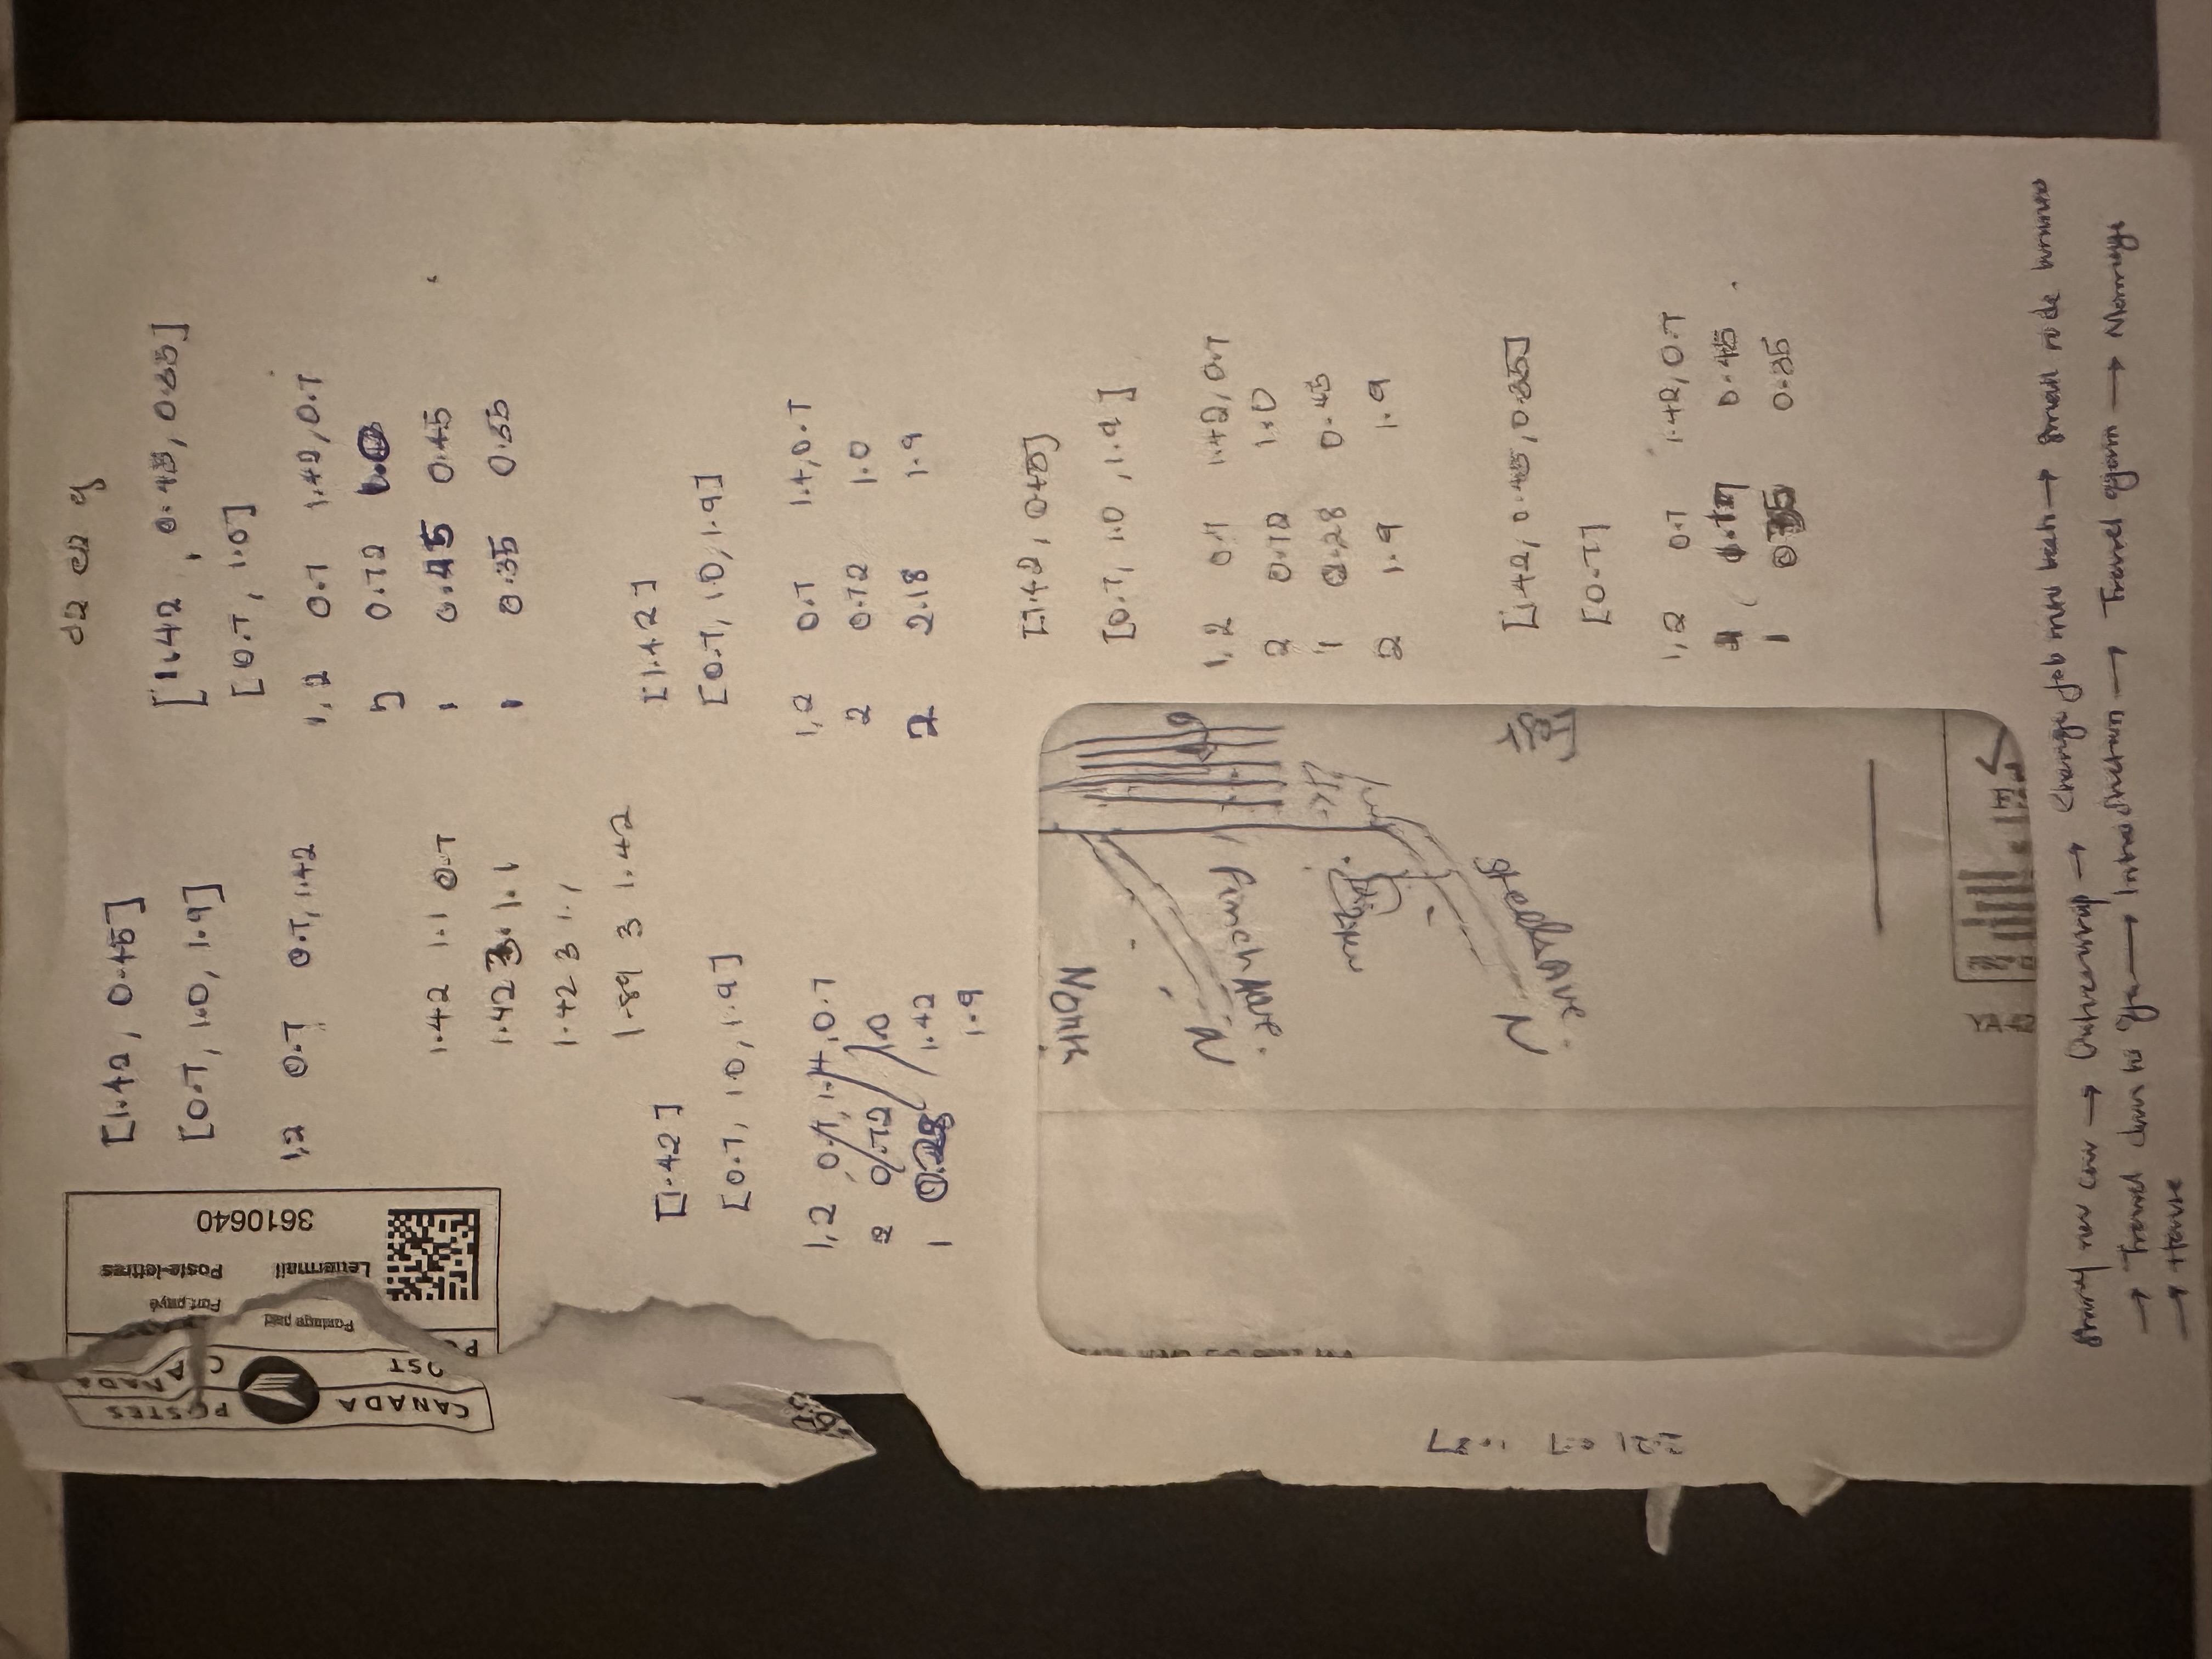 CANADA POSTES
POST CANADA
Postage paid Port payé
Lettermail Poste-lettres
3610640
[1.42, 0.45]
[0.7, 1.0, 1.9]
1,2 0.7 0.7, 1.42
1.42 1.1 0.7
1.42 3. 1.1
1.42 3 1.1
1.89 3 1.42
d2 e2 g
[1.42, 0.45, 0.35]
[0.7, 1.0]
1,2 0.7 1.42, 0.7
2 0.72 1.0
1 0.45 0.45
1 0.35 0.35
[1.42]
[0.7, 1.0, 1.9]
1,2 0.7, 1.4, 0.7
2 0.72 1.0
1 0.28 1.42
1.9
[1.42]
[0.7, 1.0, 1.9]
1,2 0.7 1.4, 0.7
2 0.72 1.0
2 2.18 1.9
[1.42, 0.45]
[0.7, 1.0, 1.9]
1,2 0.7 1.42, 0.7
2 0.72 1.0
1 0.28 0.45
2 1.9 1.9
[1.42, 0.45, 0.35]
[0.7]
1,2 0.7 1.42, 0.7
1 0.45
1 0.35 0.35
North
Finch Ave.
Steels ave.
East
2.21 0.7 1.37
→ → Change Job → Small side business
→ Travel down to → Introduction → Travel again → Marriage
→ House